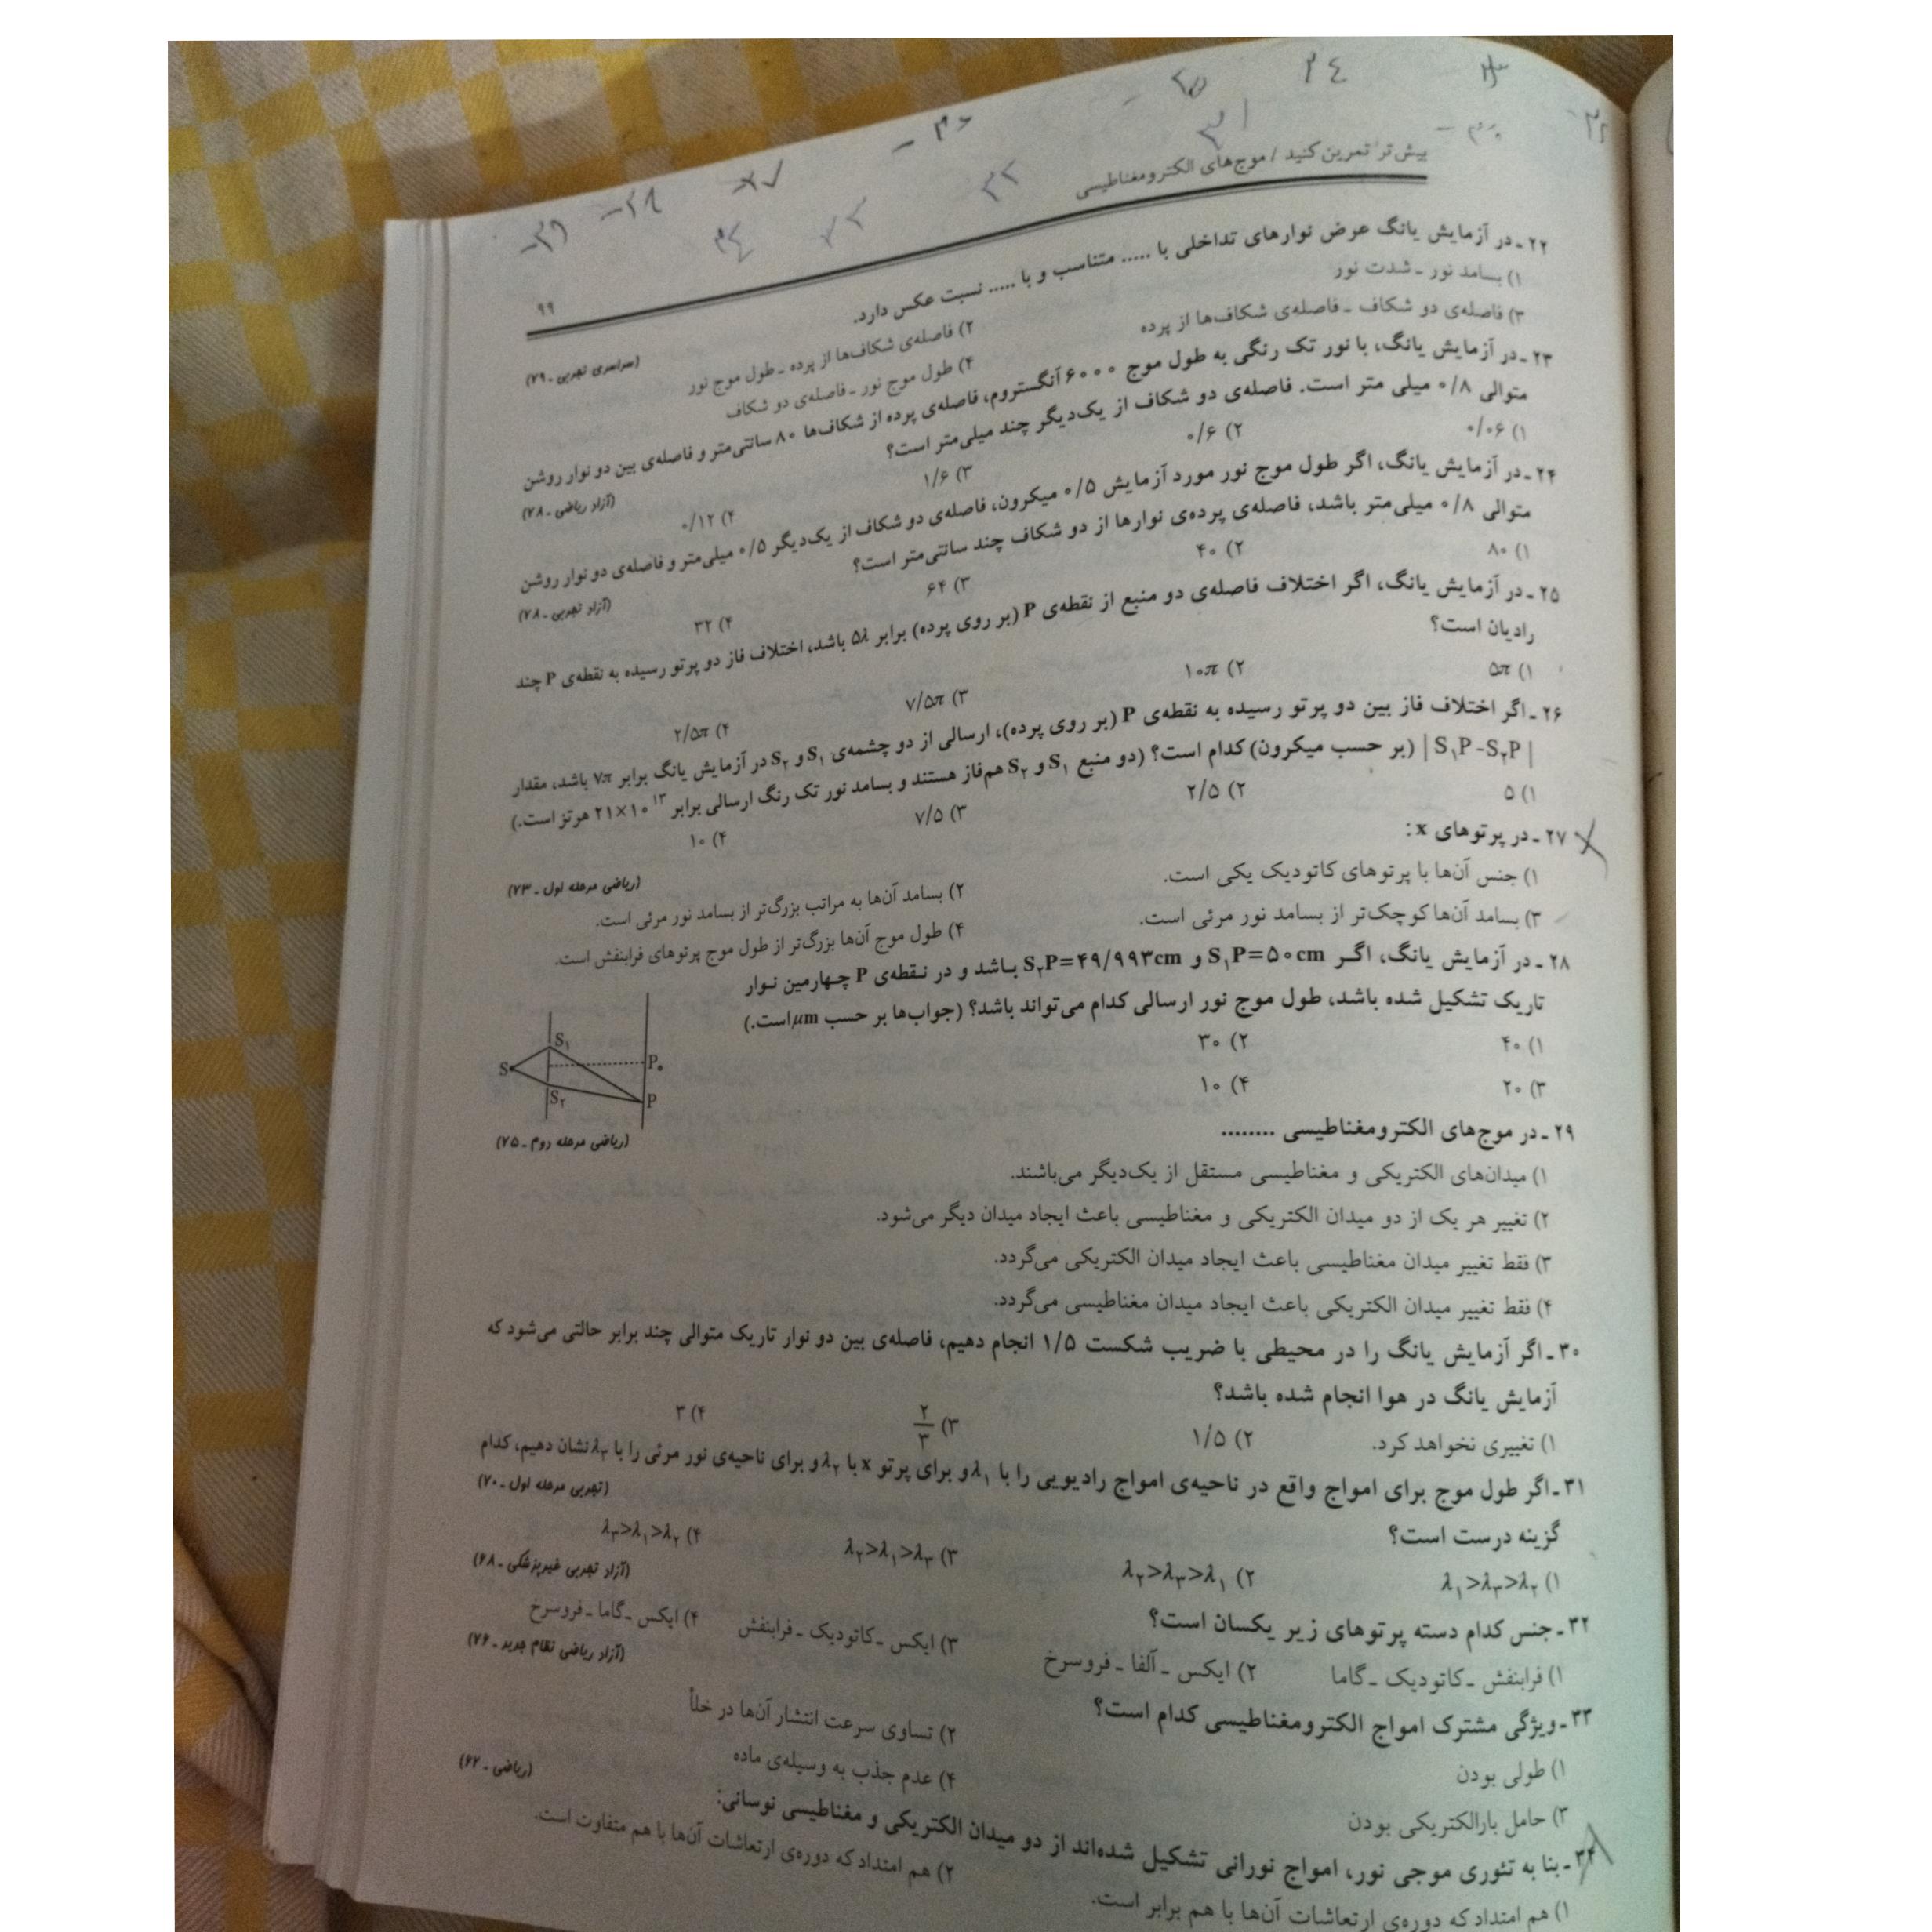 ۳۴
۳۱
۳۲
۳۳
-۲۸
-۲۹
بیش‌تر تمرین کنید / موج‌های الکترومغناطیسی
۹۹
۲۲ـ در آزمایش یانگ عرض نوارهای تداخلی با ..... متناسب و با ..... نسبت عکس دارد.
۱) بسامد نور ـ شدت نور
۲) فاصله‌ی شکاف‌ها از پرده ـ طول موج نور
۳) فاصله‌ی دو شکاف ـ فاصله‌ی شکاف‌ها از پرده
۴) طول موج نور ـ فاصله‌ی دو شکاف
(سراسری تجربی ـ ۷۹)
۲۳ـ در آزمایش یانگ، با نور تک رنگی به طول موج ۶۰۰۰ آنگستروم، فاصله‌ی پرده از شکاف‌ها ۸۰ سانتی‌متر و فاصله‌ی بین دو نوار روشن
متوالی ۰/۸ میلی متر است. فاصله‌ی دو شکاف از یک‌دیگر چند میلی‌متر است؟
(آزاد ریاضی ـ ۷۸)
۱) ۰/۰۶
۲) ۰/۶
۳) ۱/۶
۴) ۰/۱۲
۲۴ـ در آزمایش یانگ، اگر طول موج نور مورد آزمایش ۰/۵ میکرون، فاصله‌ی دو شکاف از یک‌دیگر ۰/۵ میلی‌متر و فاصله‌ی دو نوار روشن
متوالی ۰/۸ میلی‌متر باشد، فاصله‌ی پرده‌ی نوارها از دو شکاف چند سانتی‌متر است؟
(آزاد تجربی ـ ۷۸)
۱) ۸۰
۲) ۴۰
۳) ۶۴
۴) ۳۲
۲۵ـ در آزمایش یانگ، اگر اختلاف فاصله‌ی دو منبع از نقطه‌ی P (بر روی پرده) برابر ۵λ باشد، اختلاف فاز دو پرتو رسیده به نقطه‌ی P چند
رادیان است؟
۱) ۵π
۲) ۱۰π
۳) ۷/۵π
۴) ۲/۵π
۲۶ـ اگر اختلاف فاز بین دو پرتو رسیده به نقطه‌ی P (بر روی پرده)، ارسالی از دو چشمه‌ی S۱ و S۲ در آزمایش یانگ برابر ۷π باشد، مقدار
|S۱P-S۲P| (بر حسب میکرون) کدام است؟ (دو منبع S۱ و S۲ هم‌فاز هستند و بسامد نور تک رنگ ارسالی برابر ۲۱×۱۰^۱۳ هرتز است.)
۱) ۵
۲) ۲/۵
۳) ۷/۵
۴) ۱۰
۲۷ـ در پرتوهای x:
(ریاضی مرحله اول ـ ۷۳)
۱) جنس آن‌ها با پرتوهای کاتودیک یکی است.
۲) بسامد آن‌ها به مراتب بزرگ‌تر از بسامد نور مرئی است.
۳) بسامد آن‌ها کوچک‌تر از بسامد نور مرئی است.
۴) طول موج آن‌ها بزرگ‌تر از طول موج پرتوهای فرابنفش است.
۲۸ـ در آزمایش یانگ، اگر S۱P=۵۰cm و S۲P=۴۹/۹۹۳cm باشد و در نقطه‌ی P چهارمین نوار
تاریک تشکیل شده باشد، طول موج نور ارسالی کدام می‌تواند باشد؟ (جواب‌ها بر حسب μm است.)
۱) ۴۰
۲) ۳۰
۳) ۲۰
۴) ۱۰
S
S۱
S۲
P۰
P
(ریاضی مرحله دوم ـ ۷۵)
۲۹ـ در موج‌های الکترومغناطیسی ........
۱) میدان‌های الکتریکی و مغناطیسی مستقل از یک‌دیگر می‌باشند.
۲) تغییر هر یک از دو میدان الکتریکی و مغناطیسی باعث ایجاد میدان دیگر می‌شود.
۳) فقط تغییر میدان مغناطیسی باعث ایجاد میدان الکتریکی می‌گردد.
۴) فقط تغییر میدان الکتریکی باعث ایجاد میدان مغناطیسی می‌گردد.
۳۰ـ اگر آزمایش یانگ را در محیطی با ضریب شکست ۱/۵ انجام دهیم، فاصله‌ی بین دو نوار تاریک متوالی چند برابر حالتی می‌شود که
آزمایش یانگ در هوا انجام شده باشد؟
۱) تغییری نخواهد کرد.
۲) ۱/۵
۳) ۲/۳
۴) ۳
۳۱ـ اگر طول موج برای امواج واقع در ناحیه‌ی امواج رادیویی را با λ۱ و برای پرتو x با λ۲ و برای ناحیه‌ی نور مرئی را با λ۳ نشان دهیم، کدام
گزینه درست است؟
(تجربی مرحله اول ـ ۷۰)
۱) λ۱>λ۳>λ۲
۲) λ۲>λ۳>λ۱
۳) λ۲>λ۱>λ۳
۴) λ۳>λ۱>λ۲
۳۲ـ جنس کدام دسته پرتوهای زیر یکسان است؟
(آزاد تجربی غیرپزشکی ـ ۶۸)
۱) فرابنفش ـ کاتودیک ـ گاما
۲) ایکس ـ آلفا ـ فروسرخ
۳) ایکس ـ کاتودیک ـ فرابنفش
۴) ایکس ـ گاما ـ فروسرخ
۳۳ـ ویژگی مشترک امواج الکترومغناطیسی کدام است؟
(آزاد ریاضی نظام جدید ـ ۷۶)
۱) طولی بودن
۲) تساوی سرعت انتشار آن‌ها در خلأ
۳) حامل بارالکتریکی بودن
۴) عدم جذب به وسیله‌ی ماده
۳۴ـ بنا به تئوری موجی نور، امواج نورانی تشکیل شده‌اند از دو میدان الکتریکی و مغناطیسی نوسانی:
(ریاضی ـ ۶۲)
۱) هم امتداد که دوره‌ی ارتعاشات آن‌ها با هم برابر است.
۲) هم امتداد که دوره‌ی ارتعاشات آن‌ها با هم متفاوت است.